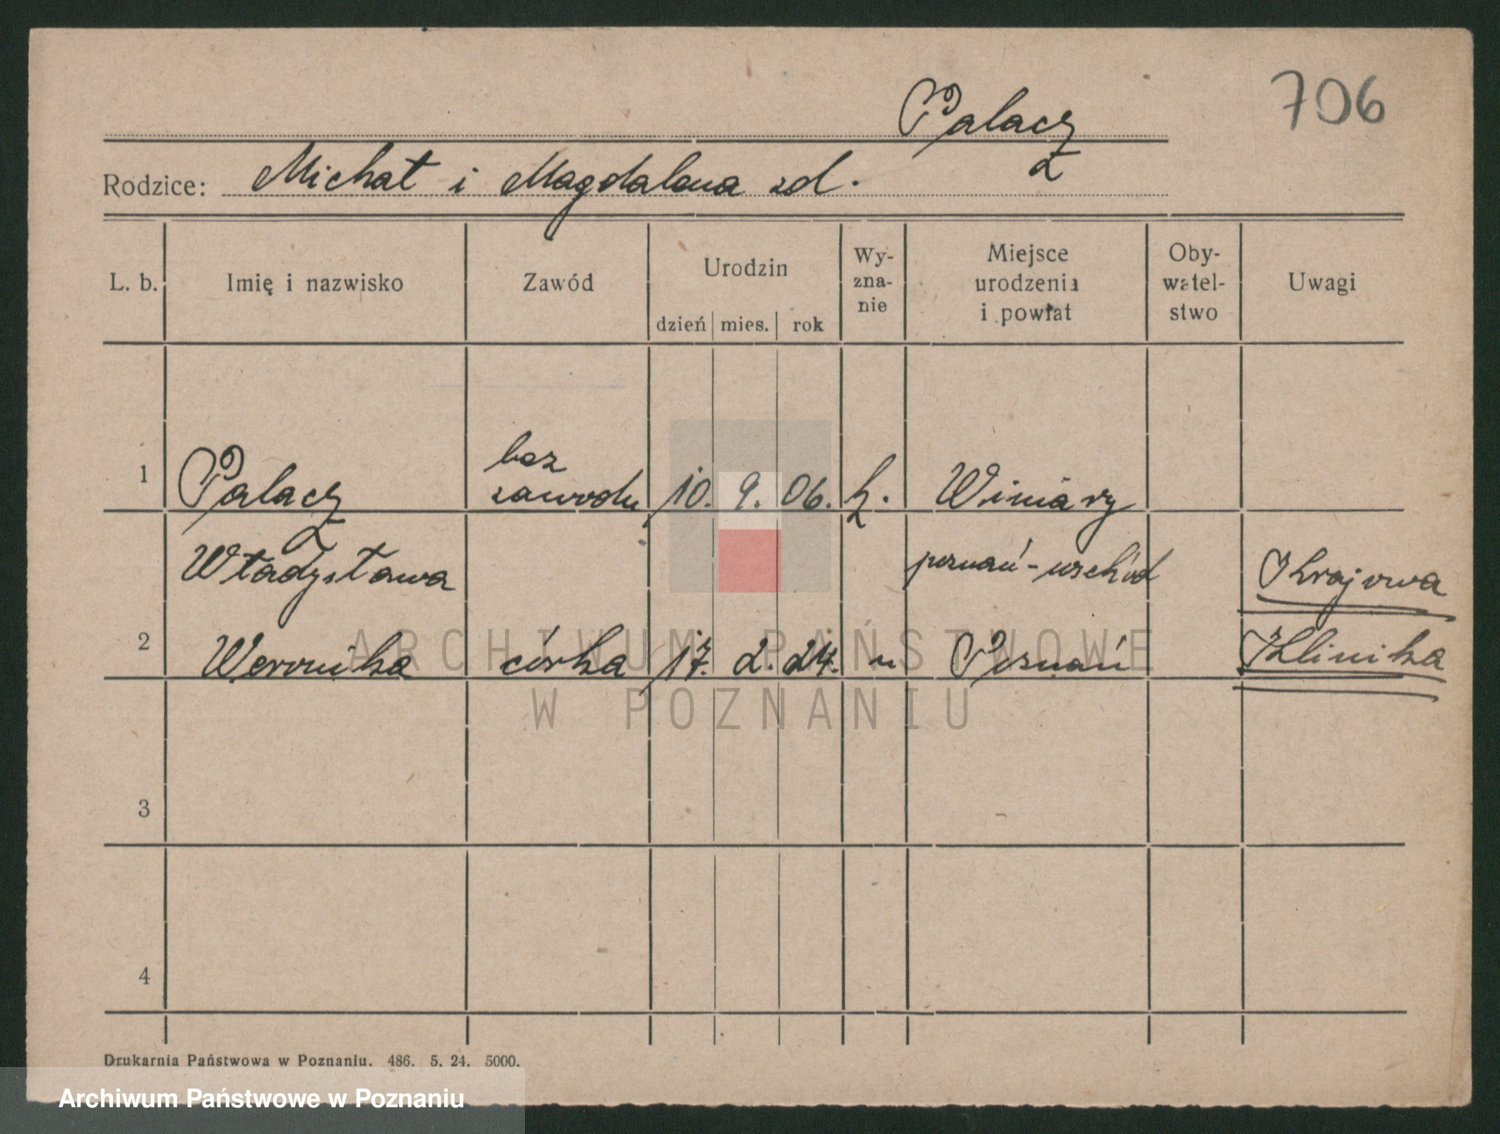 706
Palacz
Rodzice: Michał i Magdalena zd.
L. b. Imię i nazwisko Zawód Urodzin dzień mies. rok Wy-zna-nie Miejsce urodzenia i powiat Oby-watel-stwo Uwagi
bez
1 Palacz zawodu 10. 9. 06. k. Winiary
Władysława poznań-wschód Krajowa
2 Weronika córka 17. 2. 24. u Poznań Klinika
ARCHIWUM PAŃSTWOWE
W POZNANIU
3
4
Drukarnia Państwowa w Poznaniu. 486. 5. 24. 5000.
Archiwum Państwowe w Poznaniu